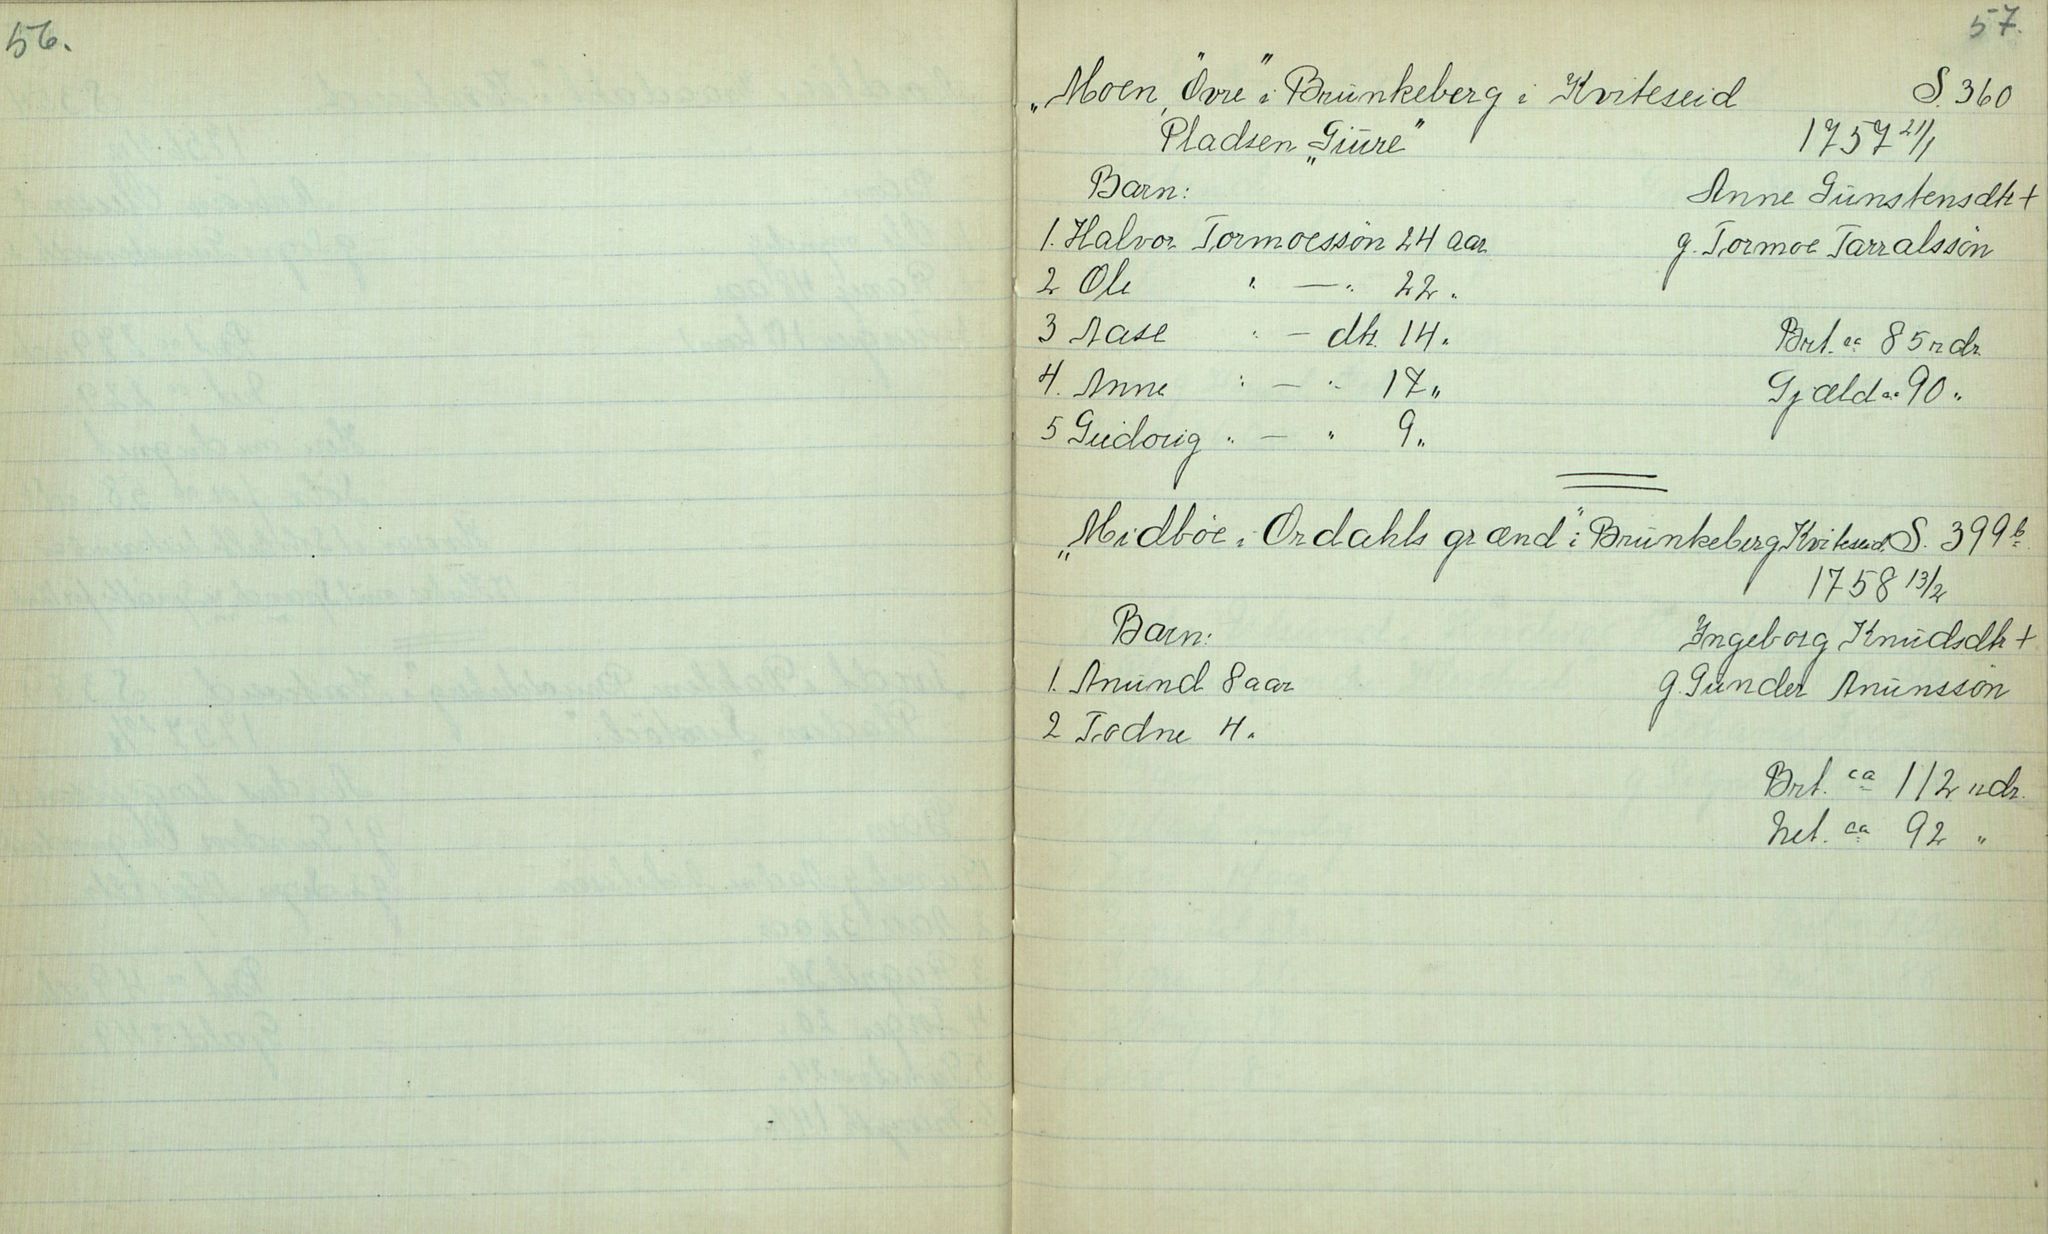 56.
57.
„Moen, "Övre" i Brunkeberg i Kviteseid S. 360
Pladsen „Giure" 1757 21/1
Barn: Anne Gunstensdtr +
1. Halvor Tormoessön 24 aar g. Tormoe Tarralssön
2 Ole " — " 22 "
3 Aase " — dtr. 14 " Brt. ca 85 rdr
4. Anne " — " 17 " Gjæld ca 90 "
5 " — " 9 "
„Midböe i Ordahls grænd" i Brunkeberg Kviteseid. S. 399 b.
1758 13/2
Barn: Ingeborg Knudsdtr +
1. Anund 8 aar g. Gunder Anunssön
2 Todne 4 "
Brt. ca 112 rdr.
Net. ca 92 "